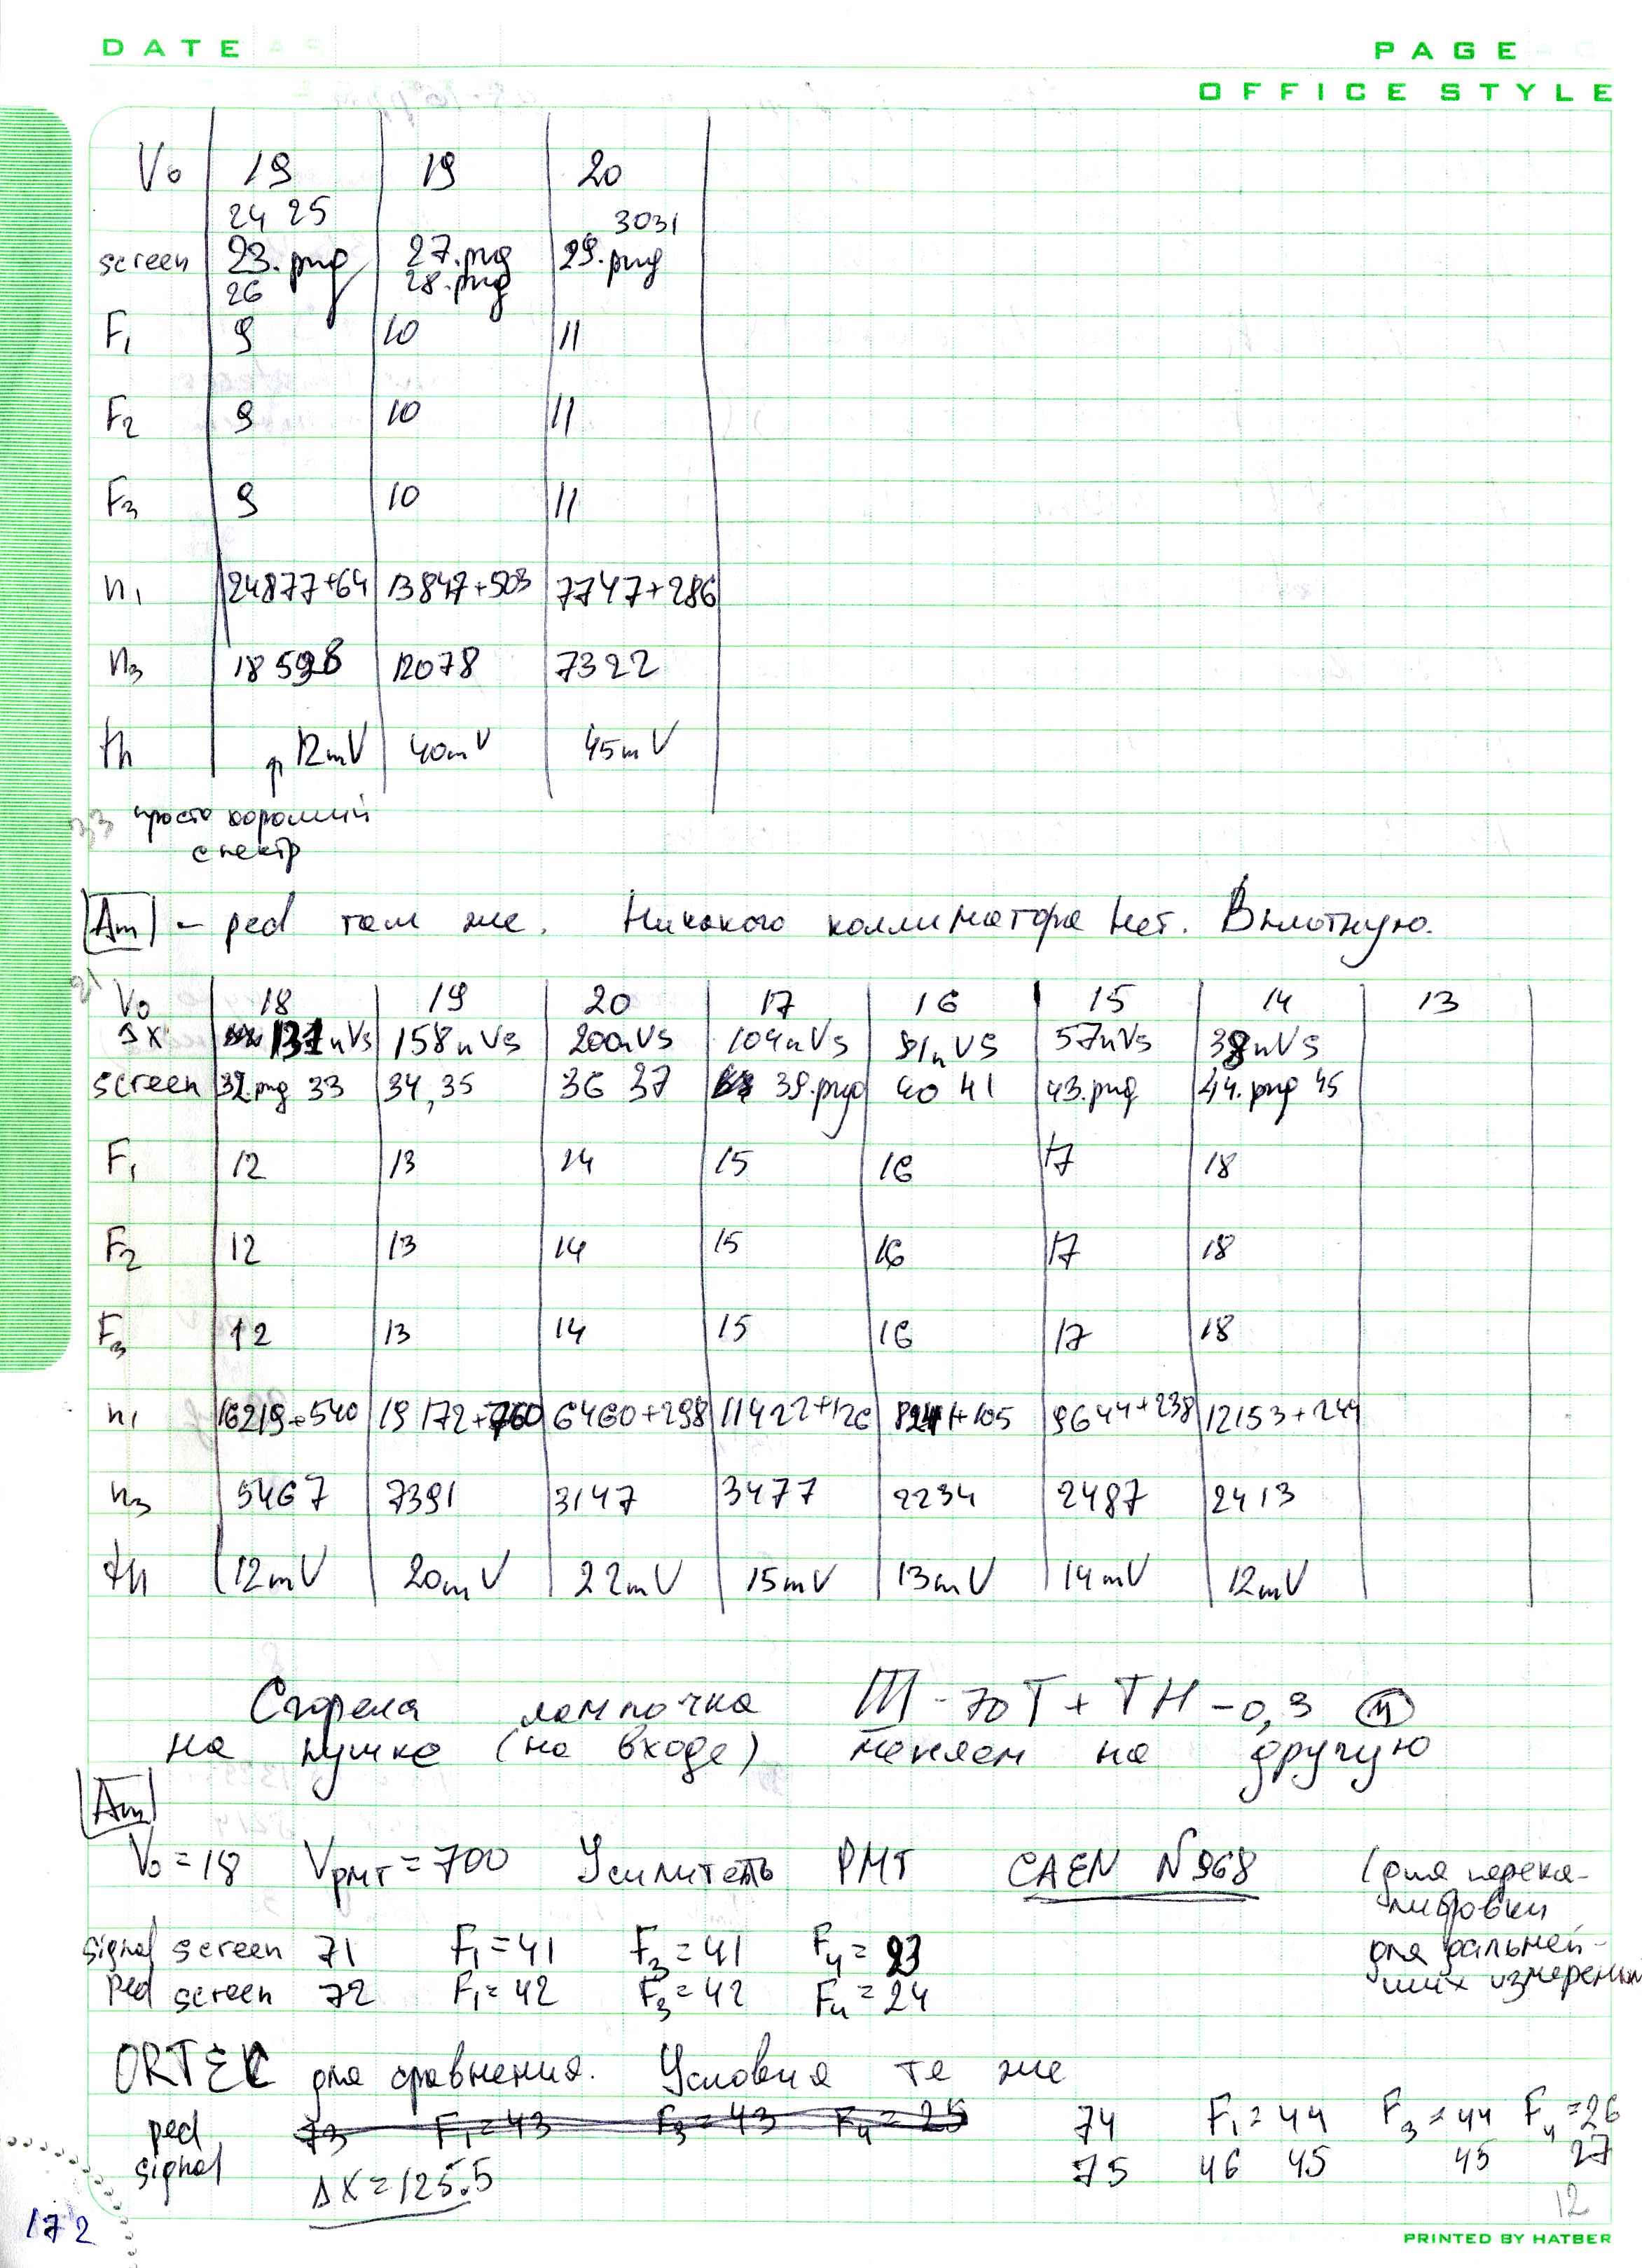 DATE
PAGE
OFFICE STYLE
V₀ 19 19 20
24 25 3031
screen 23.png 27.png 29.png
26 28.png
F₁ 9 10 11
F₂ 9 10 11
F₃ 9 10 11
n₁ 24877+64 13847+503 7747+286
n₃ 18598 12078 7322
th ↑ 12mV 40mV 45mV
33 просто хороший
спектр
Am - ped там же. Никакого коллиматора нет. Вплотную.
V₀ 18 19 20 17 16 15 14 13
ΔX 131nVs 158nVs 200nVs 104nVs 81nVs 57nVs 38nVs
screen 32.png 33 34,35 36 37 39.png 40 41 43.png 44.png 45
F₁ 12 13 14 15 16 17 18
F₂ 12 13 14 15 16 17 18
F₃ 12 13 14 15 16 17 18
n₁ 16219+540 19172+760 6460+298 11422+126 8241+105 9644+238 12153+244
n₃ 5467 7391 3147 3477 2234 2487 2413
th 12mV 20mV 22mV 15mV 13mV 14mV 12mV
Сгорела лампочка Ш-70Т+ТН-0,3
на пушке (на входе) меняем на другую
Am
V₀=18 VPMT=700 Усилитель PMT CAEN N968 (для перека-
либровки
для дальней-
ших измерений
signal screen 71 F₁=41 F₃=41 F₄=23
Ped screen 72 F₁=42 F₃=42 F₄=24
ORTEC для сравнения. Условия те же
ped 73 F₁=43 F₃=43 F₄=25 74 F₁=44 F₃=44 F₄=26
signal 75 46 45 45 27
ΔX=125.5
12
172
PRINTED BY HATBER